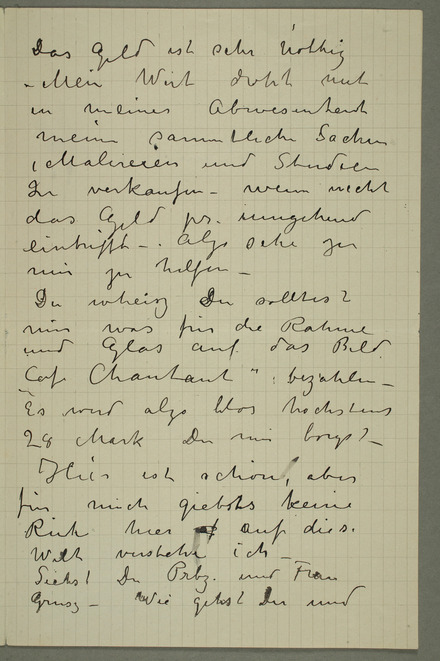 Das Geld ist sehr nöthig
– Mein Wirt droht mit
in meiner Abwesenheit
meine sammtliche Sachen
, Malereien und Studien
zu verkaufen – wenn nicht
das Geld pr. umgehend
eintrifft –. Also sehe zu
mir zu helfen –
Du wheisz Du solltest
mir was für die Rahme
und Glas auf das Bild
"Caf Chantant" : bezahlen –
Es wird also blos höchstens
28 Mark Du mir borgst –
Hier ist schön, aber
für mich giebts keine
Ruh hier auf dies.
Welt verstehe ich –
Siehst Du Prbz. und Frau
Grusz – Wie gehst Du und